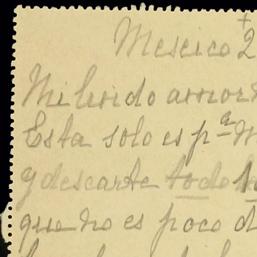 Mexico 2
Mi lindo amor
Esta solo es pª
y descarte todo
que no es poco d